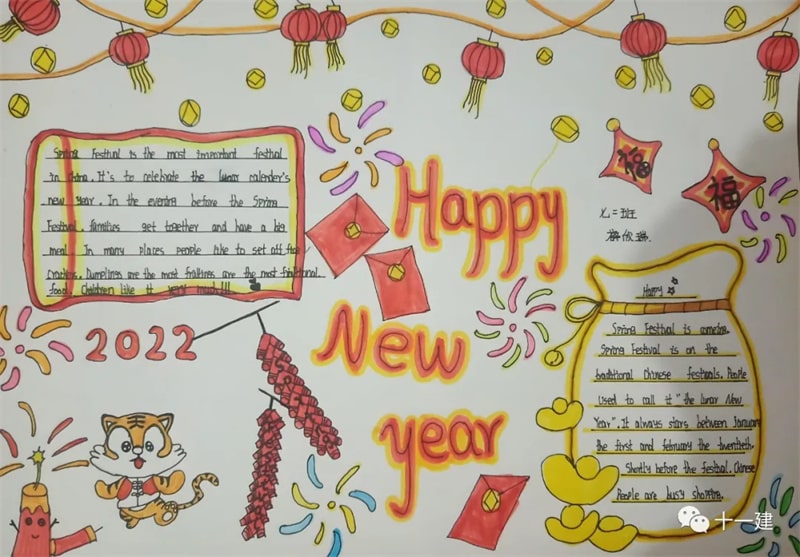 Spring Festival is the most important festival
in China. It's to celebrate the lunar calender's
new year. In the evening before the Spring
Festival, families get together and have a big
meal. In many places people like to set off fire
Crackers. Dumplings are the most fraitings are the most traditional
food. Children like it very much!!!
2022
Happy
New
year
福
福
九二班
Happy
Spring Festival is cometing.
Spring Festival is on the
traditional Chinese festivals. People
used to call it "the lunar New
Year". It always stars between January
the first and february the twentieth.
Shortly before the festival. Chinese
People are busy shopting.
十一建